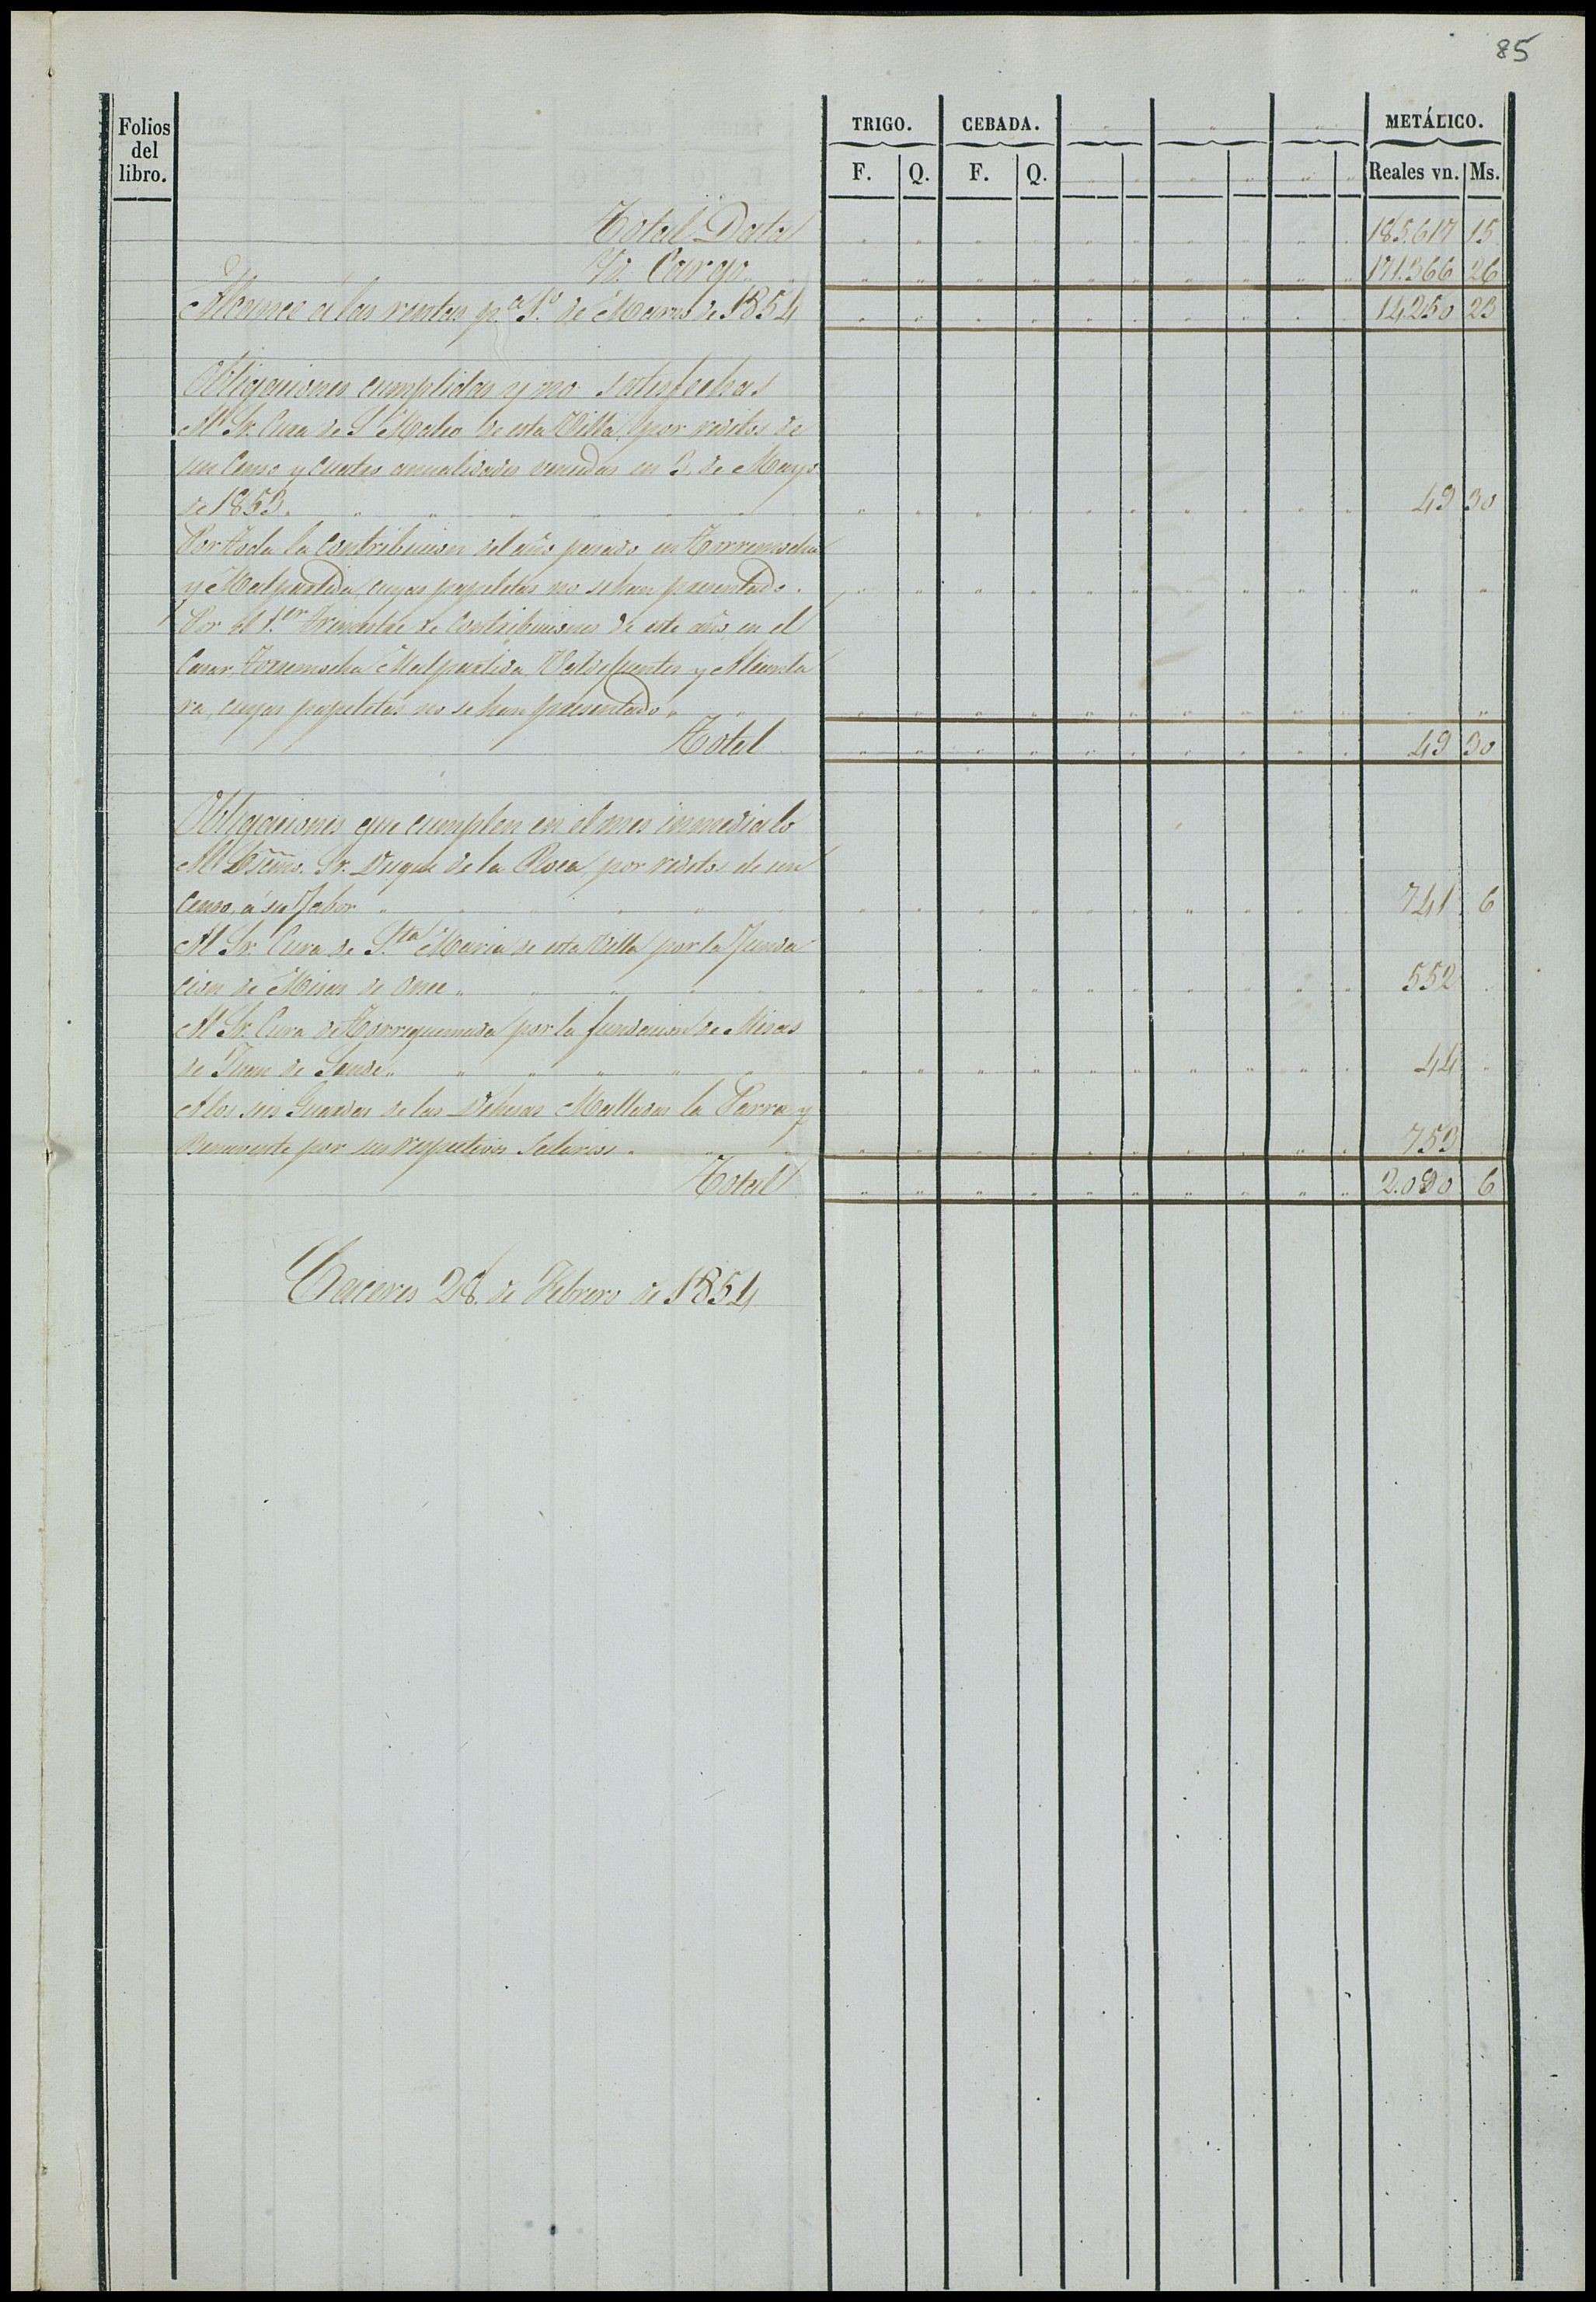 85
Folios del libro.
TRIGO. CEBADA. METÁLICO.
F. Q. F. Q. Reales vn. Ms.
Total Data 185.617 15
Yd. Cargo 171.366 26
Alcance á las rentas p.ª 1.º de Marzo de 1854 14.250 23
Obligaciones cumplidas y no satisfechas
Al Sr. Cura de S. Mateo de esta Villa, por reditos de
un Censo y cuatro anualidades vencidas en 3 de Mayo
de 1853. 49 30
Por toda la contribucion del año pasado en Torremocha
y Malpartida, cuyas papeletas no se han presentado.
Por el 1.er trimestre de Contribuciones de este año, en el
Casar, Torremocha, Malpartida, Valdefuentes y Alcanta
ra, cuyas papeletas no se han presentado
Total 49 30
Obligaciones que cumplen en el mes inmediato
Al Escmo. Sr. Duque de la Roca, por reditos de un
Censo, á su fabor 741 6
Al Sr. Cura de S.ta Maria de esta Villa por la funda
cion de Misas de once 552
Al Sr. Cura de Torrequemada por la fundacion de Misas
de Juan de Sande 44
A los seis Guardas de las Dehesas Malladas la Parra y
Benavente por sus respectivos Salarios 753
Total 2.090 6
Caceres 28 de Febrero de 1854